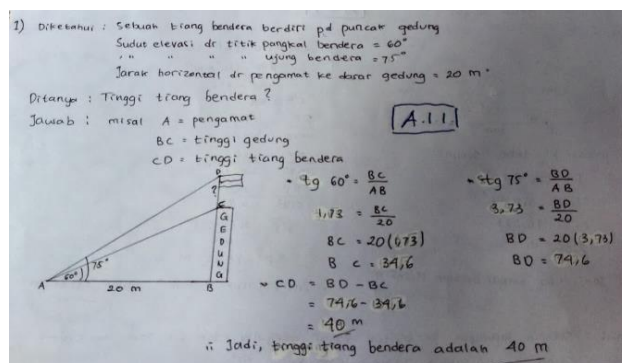 1) Diketahui : Sebuah tiang bendera berdiri pd puncak gedung
Sudut elevasi dr titik pangkal bendera = 60°
" " " " ujung bendera = 75°
Jarak horizontal dr pengamat ke dasar gedung = 20 m.
Ditanya : Tinggi tiang bendera ?
Jawab : misal A = pengamat
A.1.1
BC = tinggi gedung
CD = tinggi tiang bendera
D
?
C
GEDUNG
60°
75°
A
20 m
B
• tg 60° = BC/AB
1,73 = BC/20
BC = 20(1,73)
BC = 34,6
• tg 75° = BD/AB
3,73 = BD/20
BD = 20(3,73)
BD = 74,6
• CD = BD - BC
= 74,6 - 34,6
= 40 m
∴ Jadi, tinggi tiang bendera adalah 40 m